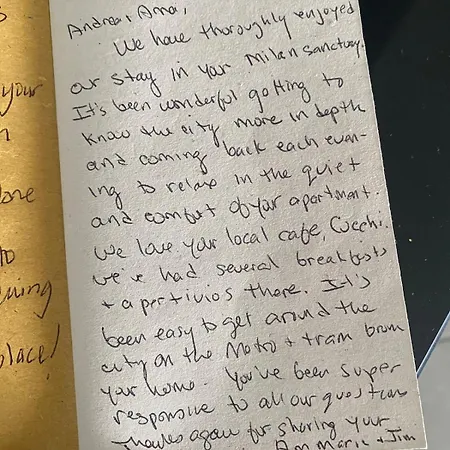 s
your
n
one
to
ening
place!
Andrea, Ama,
We have thoroughly enjoyed
our stay in your Milan sanctuary.
It's been wonderful getting to
know the city more in depth
and coming back each even-
ing to relax in the quiet
and comfort of your apartment.
We love your local cafe, Cucchi.
We've had several breakfasts
+ apertivios there. It's
been easy to get around the
city on the Metro + tram from
your home. You've been super
responsive to all our questions
Thanks again for sharing your
Ann Marie + Jim